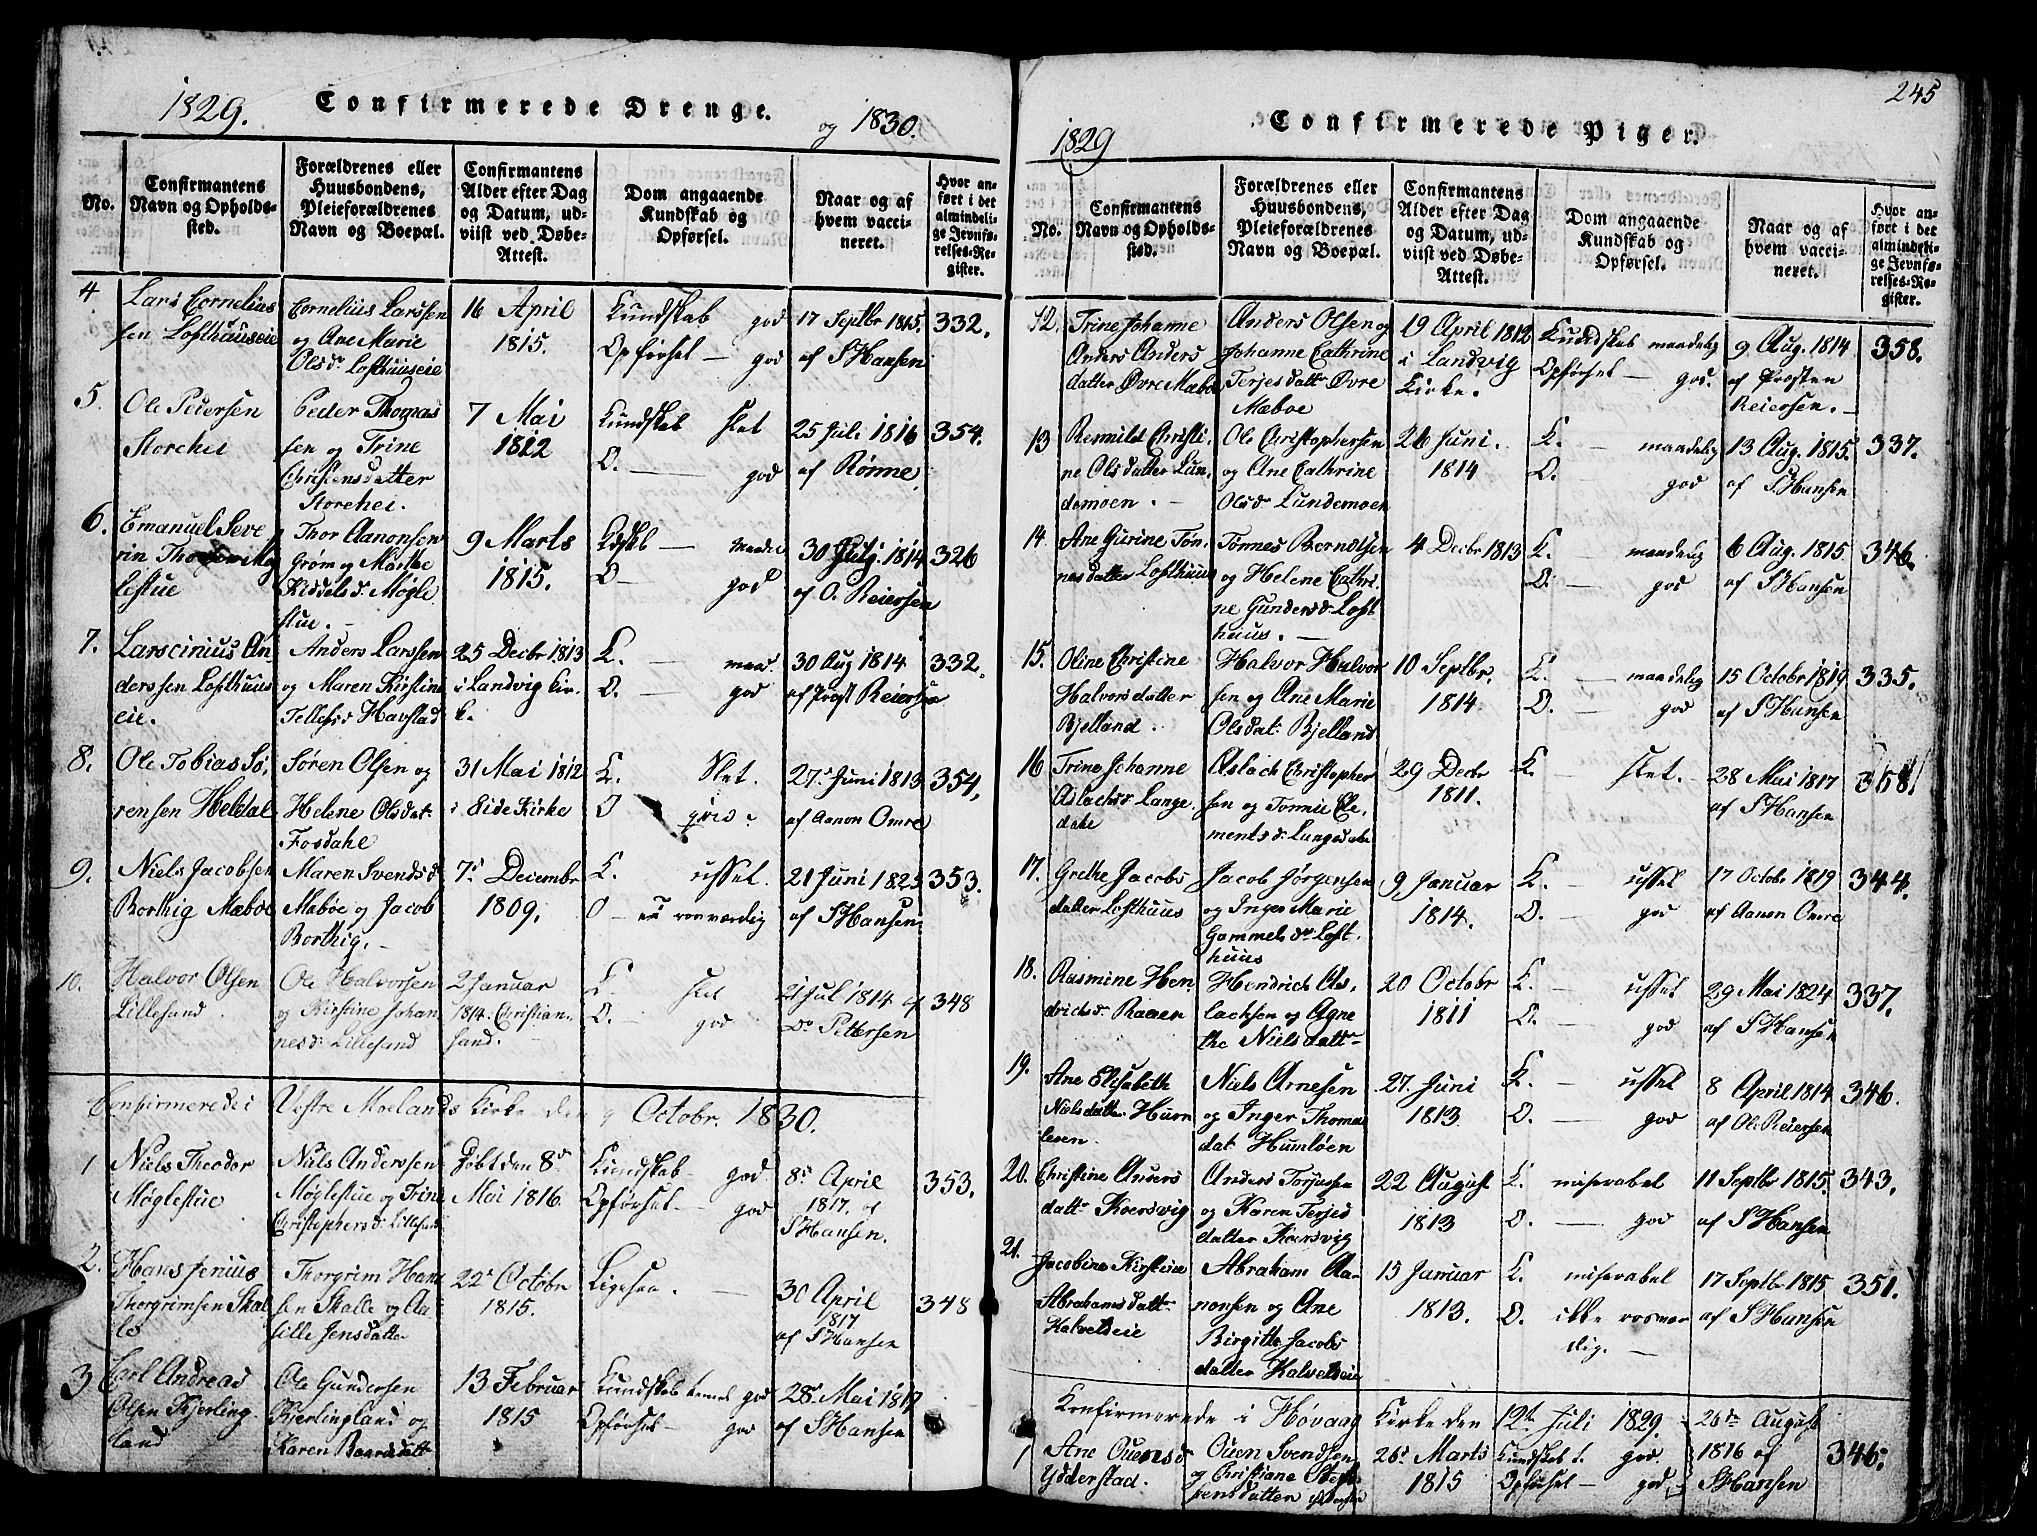 1829. Confirmerede Drenge. og 1830.
No.
Confirmantens
Navn og Opholds-
sted.
Forældrenes eller
Huusbondens,
Pleieforældrenes
Navn og Boepæl.
Confirmantens
Alder efter Dag
og Datum, ud-
viist ved Døbe-
Attest.
Dom angaaende
Kundskab og
Opførsel.
Naar og af
hvem vacci-
neret.
Hvor an-
ført i det
almindeli-
ge Jevnfø-
relses-Re-
gister.
4.
Lars Cornelius
sen Lofthuuseie
Cornelius Larssen
og Ane Marie
Olsdr Lofthuuseie
16 April
1815.
Kundskab god
Opførsel — god
17 Septbr 1815.
af SHansen
332.
5.
Ole Pedersen
Storehei
Peder Thomas
sen og Trine
Christensdatter
Storehei.
7 Mai
1812
Kundskab slet
O. — god
25 Juli 1816
af Rønne
354.
6.
Emanuel Seve
rin Thorsen Møg
lestue
Thor Aanonsen
Grøm og Marthe
Kiddelsdr Møgle
stue. —
9 Marts
1815.
Kdskb — maadel
O — god
30 Julj. 1814
af O. Reiersen
326
7.
Larscinius An-
derssen Lofthuus
eie.
Anders Larssen
og Maren Kirstine
Tellefsdr Havstad
25 Decbr 1813
i Landvig Kir-
k.
K. — maad
O. — god
30 Aug 1814
af Prost Reiersen
332.
8.
Ole Tobias Sø,
rensen Heldal
Søren Olsen og
Helene Olsdat:
Fosdahl
31 Mai 1812
i Eide Kirke
K. Slet.
O
27. Juni 1813
af Aanon Omre
354,
9.
Niels Jacobsen
Borthig Mæbøe
Maren Svendsdr
Mæbøe og Jacob
Borthig.
7. Decembr
1809.
K. usset.
O — roesværdig
21 Juni 1825
af SHansen
353.
10.
Halvor Olsen
Lillesand
Ole Halvorsen
og Kirstine Johan
nesdr Lillesand
2 Januar
1814. Christian-
sand.
K. slet
O. god
21 Jul 1814 af
Dr Pettersen
348
Confirmerede i Vestre Moelands Kirke den Octobr. 1830.
1
Niels Theodor
Møglestue
Niels Anderssen
Møglestue og Trine
Christophersdr Lillesand
Døbt den 8de
Mai 1816.
Kundskab god
Opførsel — god
8de April
1817. af
SHansen.
353.
2.
Hans Jenius
Thorgrimsen Skal
le
Thorgrim Han
sen Skalle og Aa
sille Jensdatter
22. Octobr
1815.
Ligesaa.
30 April
1817
af SHansen
348
3
Carl Andreas
Olsen Kjerling
land
Ole Gundersen
Kjerlingland og
Karen Baardsdatt
13 Februar
1815
Kundskab temmel god
Opførsel — god
28. Mai 1817
af SHansen
1829 Confirmerede Piger. 245
No.
Confirmantens
Navn og Opholds-
sted.
Forældrenes eller
Huusbondens,
Pleieforældrenes
Navn og Boepæl.
Confirmantens
Alder efter Dag
og Datum, ud-
viist ved Døbe-
Attest.
Dom angaaende
Kundskab og
Opførsel.
Naar og af
hvem vacci-
neret.
Hvor an-
ført i det
almindeli-
ge Jevnfø-
relses-Re-
gister.
12.
Trine Johanne
Anders
datter Øvre Mæbøe
Anders Olsen og
Johanne Cathrine
Terjesdattr Øvre
Mæboe
19 April 1812
i Landvig
Kirke.
Kundskab maadelig
Opførsel — god.
9 Aug. 1814
af Prosten
Reiersen. —
358.
13
Rennild Christi-
ne Olsdatter Lun-
demoen. —
Ole Christophersen
og Ane Cathrine
Olsdr Lundemoen
26 Juni.
1814
K. — maadelig
O. god
13 Aug. 1815.
af S.Hansen
337.
14
Ane Gurine Tøn-
nesdatter Lofthuus
Tønnes Berndtsen
og Helene Cathri-
ne Gundersdr Loft
huus. —
4 Decbr 1813
K. — maadelig
O. — god
6 Aug. 1815
af SHansen
346.
15.
Oline Christine
Halvorsdatter
Bjelland.
Halvor Halvor
sen og Ane Marie
Olsdat: Bjelland
10 Septbr.
1814
K. — maadelig
O. — god
15 Octobr 1819
af SHansen
335.
16
Trine Johanne
Aslachsdr Lange,
dahl
Aslach Christopher
sen og Tomine Cle
mentsdr Langedahl
29 Decbr
1811.
K. slet.
28 Mai 1817
af SHansen
17.
Grethe Jacobs
datter Lofthuus
Jacob Jørgensen
og Inger Marie
Gammelsdr Loft,
huus
9 Januar
1814.
K. — usset
O. — god
17 Octobr 1819
af Aanon Omre
344.
18.
Rasmine Hen
drichsdr Raaen
Hendrich As,
lachsen og Agne
the Nielsdattr
20 Octobr
1811
K. — usset
O. — god
29 Mai 1824
af SHansen
337.
19.
Ane Elisabeth
Nielsdatter Hum
leøen.
Niels Arnesen
og Inger Thomas
dat Humløen
27. Juni
1813.
K. — usset
O. — god
8 April 1814
af Ol. Reiersen
346.
20.
Christine Anders
dattr Koersvig
Anders Torjussen
og Karen Terjes
datter Koersvig
22 August
1813
K. miserabel
O. — god
11 Septbr 1815.
af SHansen
343.
21.
Jacobine Kirstine
Abrahamsdattr
Kalvehseie
Abraham Aa-
nonsen og Ane
Birgitte Jacobs
datter Kalvehseie
15 Januar
1813.
K. miserabel
O. ikke rosvær
dig. —
17 Septbr 1815
af SHansen
351.
Konfirmerede i Høvaag Kirke den 12te Juli 1829.
1
Ane Ouensdr
Ydderstad.
Ouen Svendsen
og Christiane
26. Marts
1815
Kundskab t. god.
Opførsel — god
26de August
1816 af
SHansen
346.